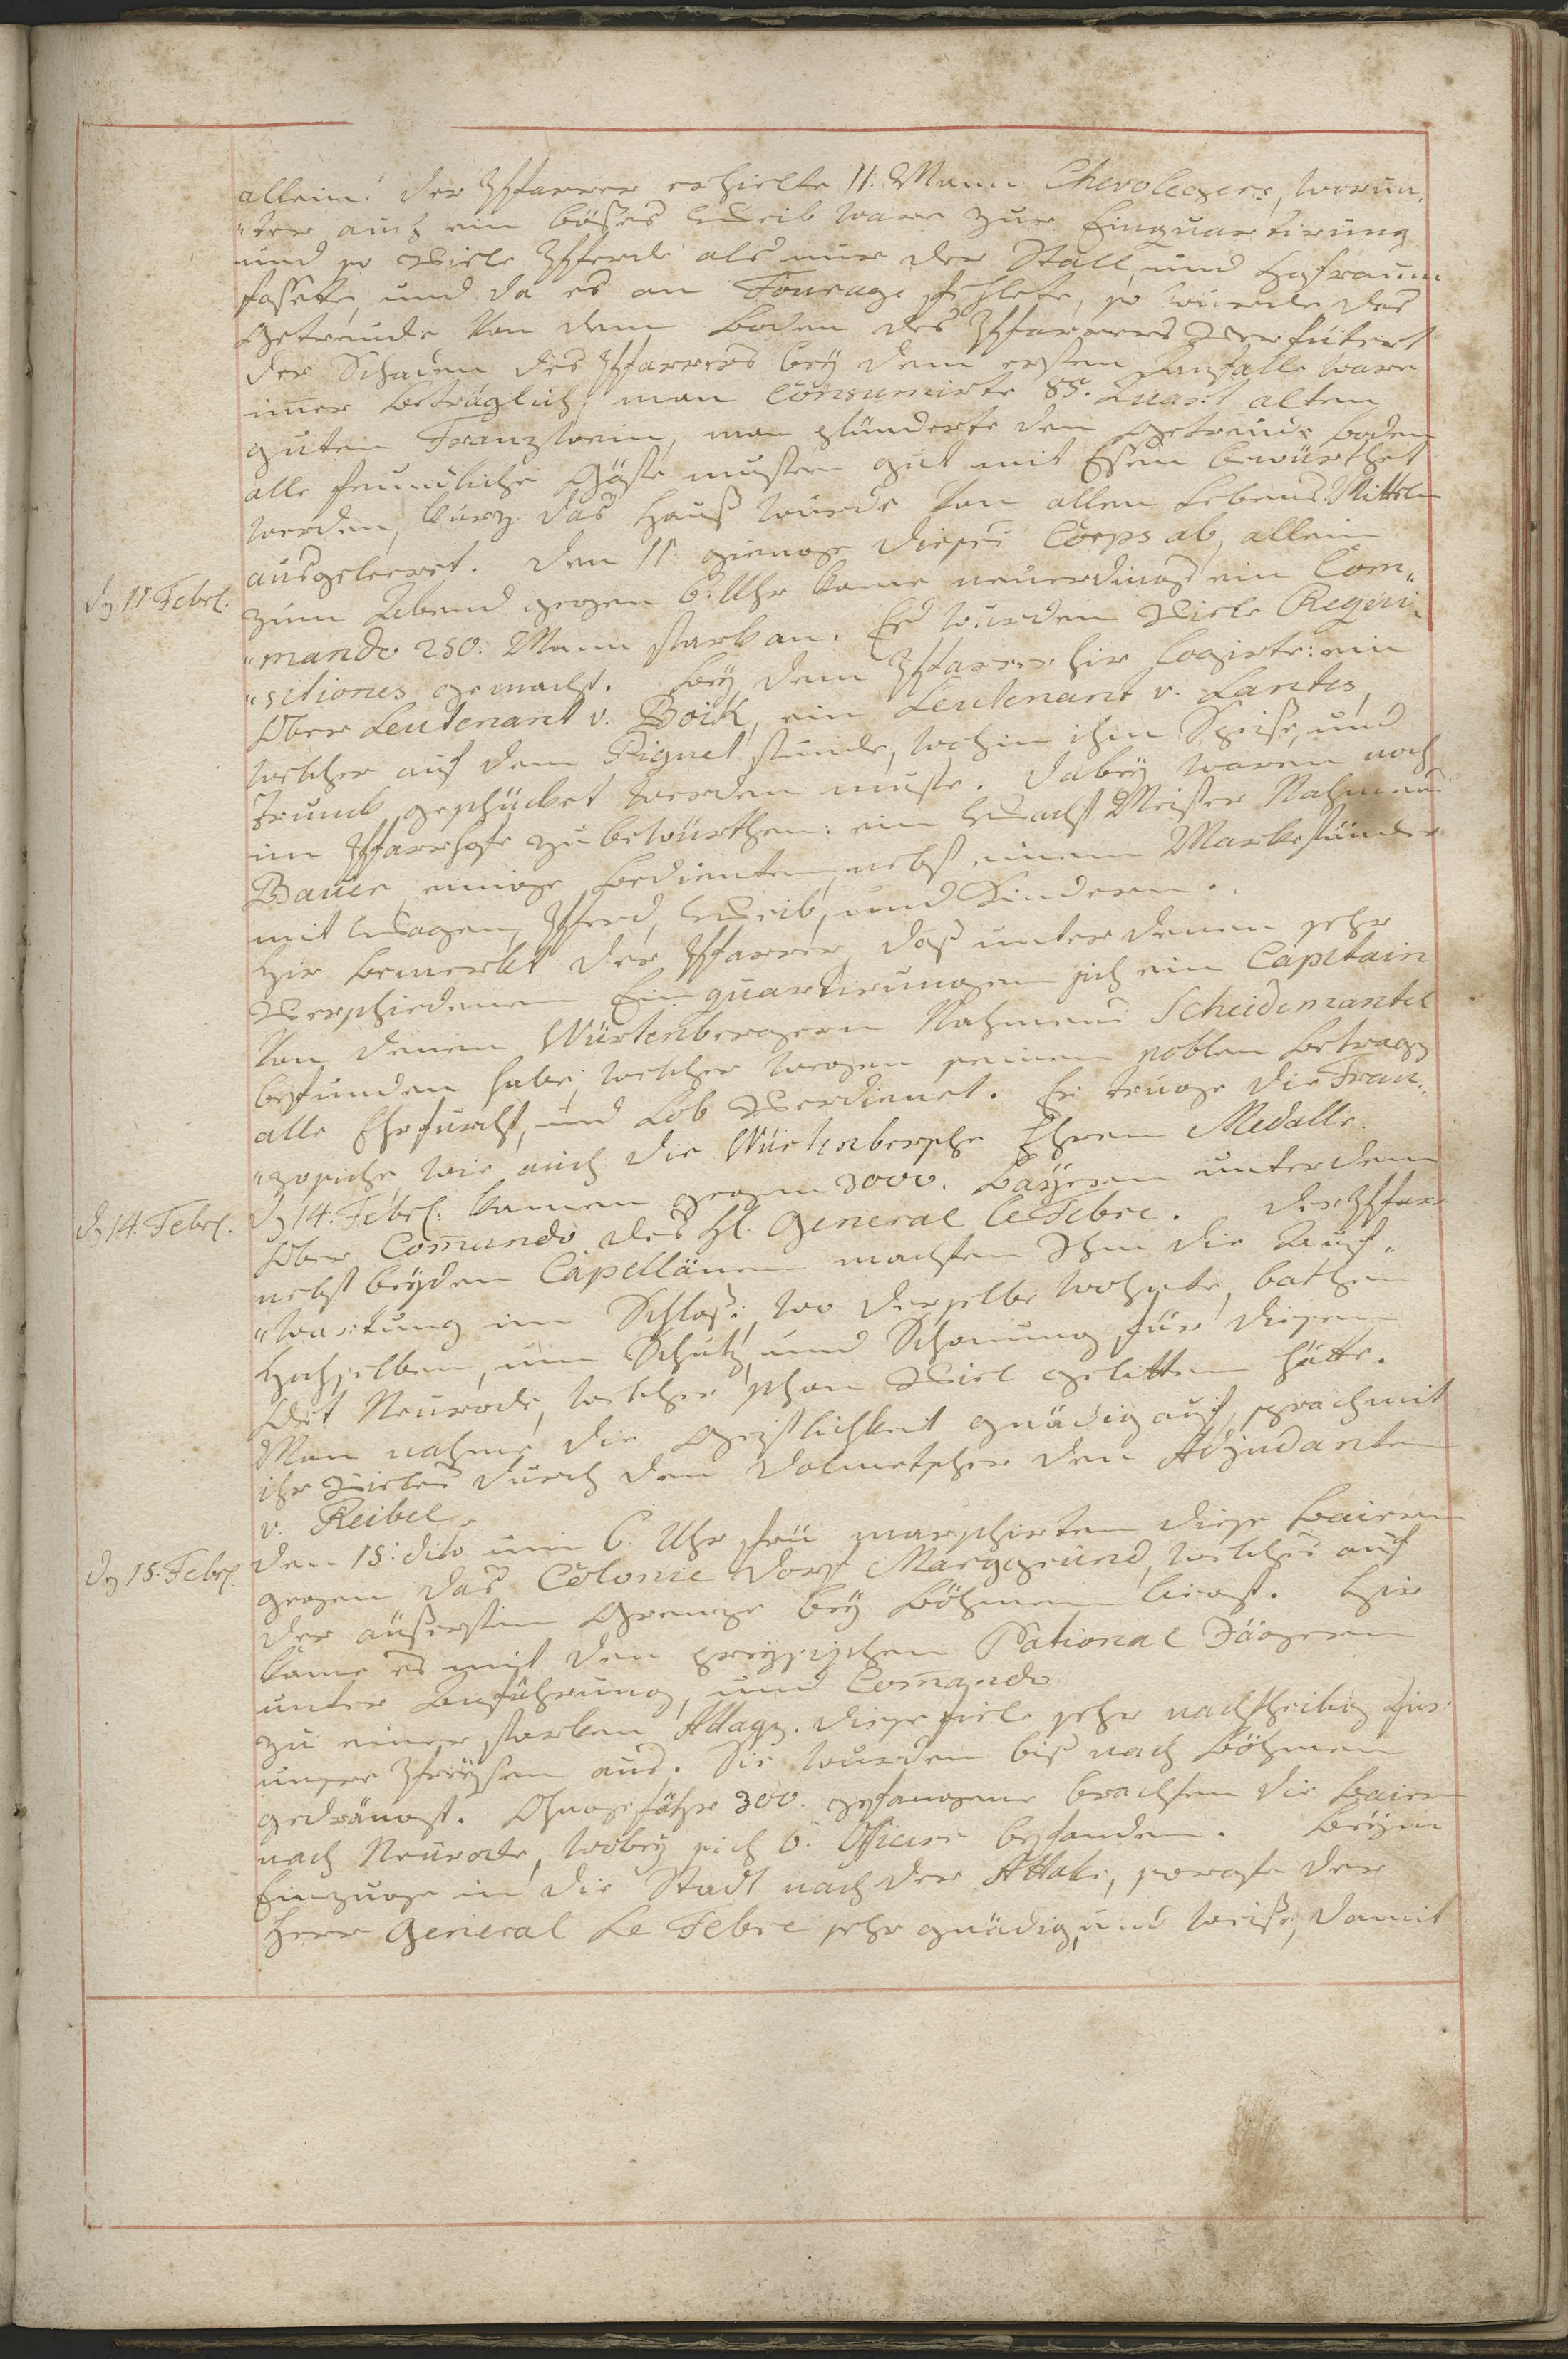 allein! der Pfarrer erhielte 11. Mann Chevolegers, worun„
„ter auch ein böses Weib ware zur Einquartirung
und so Viele Pferde als nur der Stall und Hofraum
fassete, und da es an Fourage fehlete, so wurde das
Getreude von dem Boden des Pfarrers Verfütert
der Schaden des Pfarrers bey dem ersten Anfalle ware
im̄er beträglich, man Consumirte 85. Quart alten
guten Franzwein, man plünderte den Getreude Boden
alle feundliche Gäste musten gut mit Essen bewürthet
werden, kurz das Hauß wurde von allen Lebens Mitteln
ausgeleeret. Den 11. gienge dieses Corps ab, allein
dn 11. Febrl.
zum Abend gegen 6. Uhr kame neuerdings ein Com„
„mando 250. Mann stark an. Es wurden Viele Requi„
„sitiones gemacht. Bey dem Pfarrer hir Logirte: ein
Ober Leutenant v. Boik, ein Leutenant v. Lantes,
welcher auf dem Piquet stunde, wohin ihm Speise, und
Trunck geschücket werden muste. Dabey waren noch
im Pfarrhofe zu bewürthen: ein Wacht Meister Nahmens
Bauer, einige Bedienten, nebst einem Markeständer
mit Wagen, Pferd, Weib, und Kindern.
Hir bemerket der Pfarrer, daß unter denen sehr
Verschiedenen Einquartirungen sich ein Capitain
von denen Würtenbergern Nahmens Scheidemantel
befunden habe, welcher wegen seinem noblen Betrage
alle Ehrfurcht, und Lob Verdienet. Er truge die Fran„
„zosiche wie auch die Würtenbersche Ehren Medalle.
dn 14. Febrl.
dn 14. Febrl. kamen gegen 3000. Bayern unter dem
Ober Com̄ando des H. General le Febre. Der Pfarr
nebst beyden Capellänen machten Ihm die Auf„
„wartung im Schloß, wo derselbe wohnte, bathen
Hochselben, um Schutz, und Schonung für diesen
Ort Neurode, welcher schon Viel gelitten hätte.
Man nahme die Geistlichkeit gnädig auf, sprach mit
ihr Vieles durch den Dolmetscher den Adjudanten
v. Reibel.
dn 15. Febrl.
den 15. dito um 6. Uhr frü marschirten diese Baiern
gegen das Colonie Dorf Marggrund, welches auf
der äußersten Grenze bey Böhmen liegt. Hir
kame es mit den preysischen National Jägern
unter Anführung, und Com̄ando
zu einer starken Attaqe. diese fiele sehr nachtheilig für
unsre Preysen aus. Sie wurden biß nach Böhmen
gedrängt. Ohngefähre 300. gefangene brachten die Baiern
nach Neurode, wobey sich 6. Officire befanden. Beym
Einzuge in die Stadt nach der Attake, sorgte der
Herr General Le Febre sehr gnädig, und weise, damit